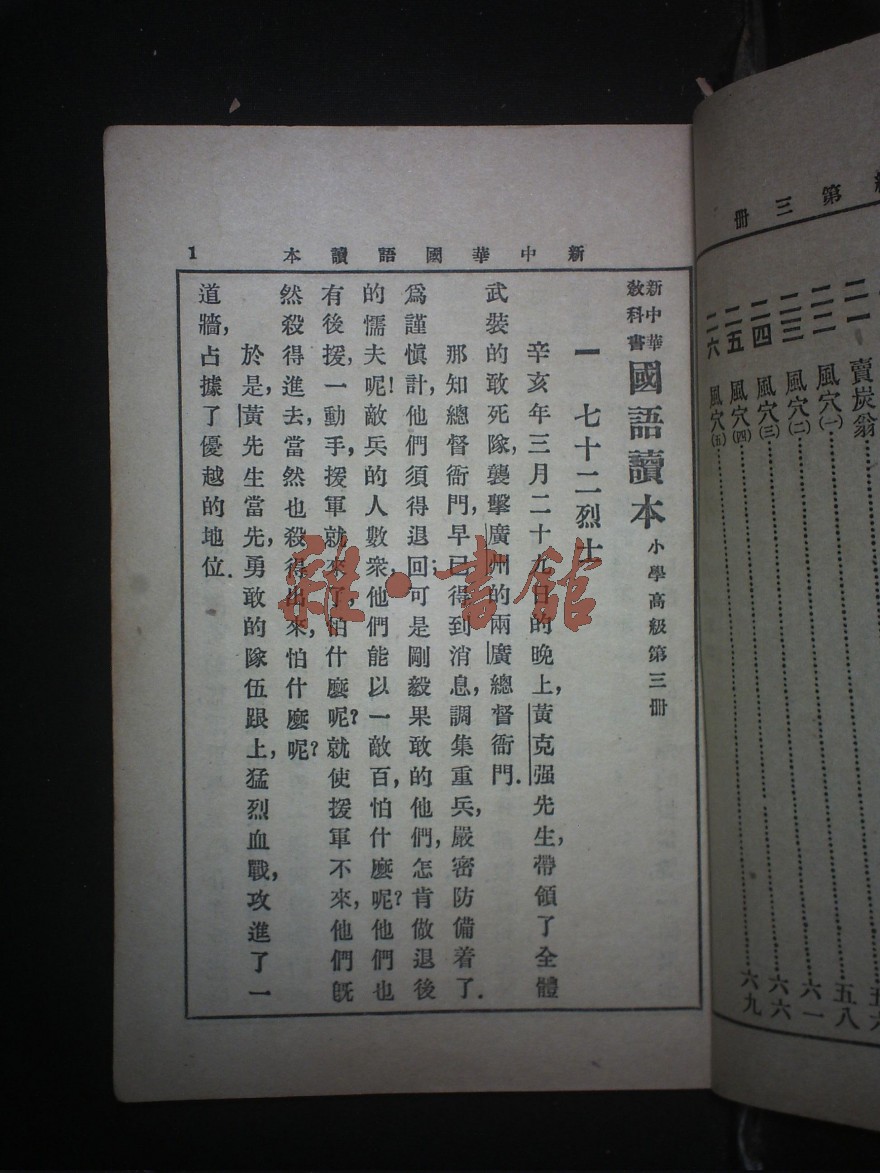 第三冊
二一 賣炭翁
二二 風穴(一) 五八
二三 風穴(二) 六一
二四 風穴(三) 六六
二五 風穴(四) 六九
二六 風穴(五)
新中華國語讀本
1
新中華
教科書
國語讀本 小學高級第三冊
一 七十二烈士
辛亥年三月二十九日的晚上,黃克强先生,帶領了全體
武裝的敢死隊,襲擊廣州的兩廣總督衙門.
那知總督衙門,早已得到消息,調集重兵,嚴密防備着了.
爲謹愼計,他們須得退回;可是剛毅果敢的他們,怎肯做退後
的懦夫呢!敵兵的人數衆,他們能以一敵百,怕什麼呢?他們也
有後援,一動手,援軍就來了,怕什麼呢?就使援軍不來,他們旣
然殺得進去,當然也殺得出來,怕什麼呢?
於是,黃先生當先,勇敢的隊伍跟上,猛烈血戰,攻進了一
道牆,占據了優越的地位.
雜·書館